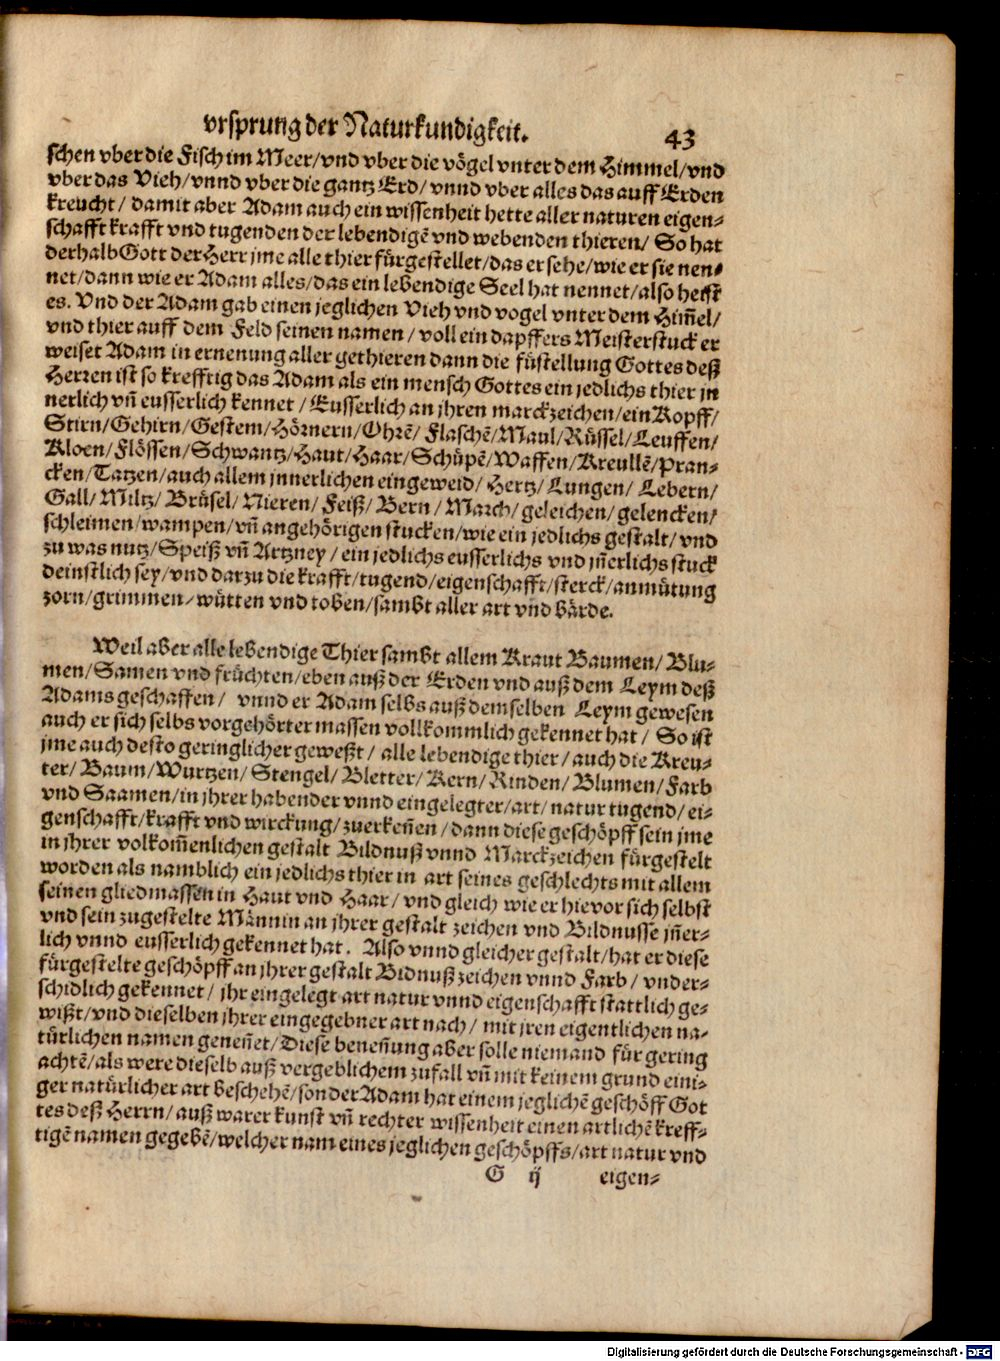 vrsprung der Naturkundigkeit. 43
schen vber die Fisch im Meer/vnd vber die vögel vnter dem Himmel/vnd
vber das Vieh/vnnd vber die gantz Erd/ vnnd vber alles das auff Erden
kreucht/ damit aber Adam auch ein wissenheit hette aller naturen eigen⸗
schafft krafft vnd tugenden der lebendigẽ vnd webenden thieren/ So hat
derhalb Gott der Herr jme alle thier fürgestellet/das er sehe/wie er sie nen⸗
net/dann wie er Adam alles/das ein lebendige Seel hat nennet/also heist
es. Vnd der Adam gab einen jeglichen Vieh vnd vogel vnter dem Him̃el/
vnd thier auff dem Feld seinen namen/ voll ein dapffers Meisterstuck er
weiset Adam in ernenung aller gethieren dann die füstellung Gottes deß
Herren ist so krefftig das Adam als ein mensch Gottes ein jedlichs thier jn
nerlich vñ eusserlich kennet/ Eusserlich an jhren marckzeichen/ein Kopff/
Stirn/Gehirn/Gestem/Hörnern/Ohrẽ/ Flaschẽ/Maul/Rüssel/Leuffen/
Kloen/Flössen/Schwantz/Haut/Haar/Schüpẽ/Waffen/Kreullẽ/Pran⸗
cken/Tatzen/auch allem jnnerlichen eingeweid/ Hertz/ Lungen/ Lebern/
Gall/ Miltz/ Brüsel/ Nieren/ Feiß/ Bern/ March/ geleichen/ gelencken/
schleimen/wampen/vñ angehörigen stucken/wie ein jedlichs gestalt/ vnd
zu was nutz/Speiß vñ Artzney/ ein jedlichs eusserlichs vnd jñerlichs stuck
deinstlich sey/vnd darzu die krafft/tugend/eigenschafft/sterck/anmütung
zorn/grimmen/wütten vnd toben/sambt aller art vnd bärde.
Weil aber alle lebendige Thier sambt allem Kraut Baumen/ Blu⸗
men/Samen vnd früchten/eben auß der Erden vnd auß dem Leym deß
Adams geschaffen/ vnnd er Adam selbs auß demselben Leym gewesen
auch er sich selbs vorgehörter massen vollkommlich gekennet hat/ So ist
jme auch desto geringlicher geweßt/ alle lebendige thier/ auch die Kreu⸗
ter/ Baum/Wurtzen/ Stengel/ Bletter/ Kern/ Rinden/ Blumen/ Farb
vnd Saamen/in jhrer habender vnnd eingelegter/art/ natur tugend/ ei⸗
genschafft/krafft vnd wirckung/ zuerkeñen/ dann diese geschöpff sein jme
in jhrer volkom̃enlichen gestalt Bildnuß vnnd Marckzeichen fürgestelt
worden als namblich ein jedlichs thier in art seines geschlechts mit allem
seinen gliedmassen in Haut vnd Haar/ vnd gleich wie er hievor sich selbst
vnd sein zugestelte Männin an jhrer gestalt zeichen vnd Bildnusse jñer⸗
lich vnnd eusserlich gekennet hat. Also vnnd gleicher gestalt/hat er diese
fürgestelte geschöpff an jhrer gestalt Bidnuß zeichen vnnd Farb/ vnder⸗
schidlich gekennet/ jhr eingelegt art natur vnnd eigenschafft stattlich ge⸗
wißt/vnd dieselben jhrer eingegebner art nach/ mit jren eigentlichen na⸗
türlichen namen geneñet/Diese beneñung aber solle niemand für gering
achtẽ/als were dieselb auß vergeblichem zufall vñ mit keinem grund eini⸗
ger natürlicher art beschehẽ/sonder Adam hat einem jeglichẽ geschöff Got
tes deß Herrn/ auß warer kunst vñ rechter wissenheit einen artlichẽ kreff⸗
tigẽ namen gegebẽ/welcher nam eines jeglichen geschöpffs/art natur vnd
G ij eigen⸗
Digitalisierung gefördert durch die Deutsche Forschungsgemeinschaft - DFG